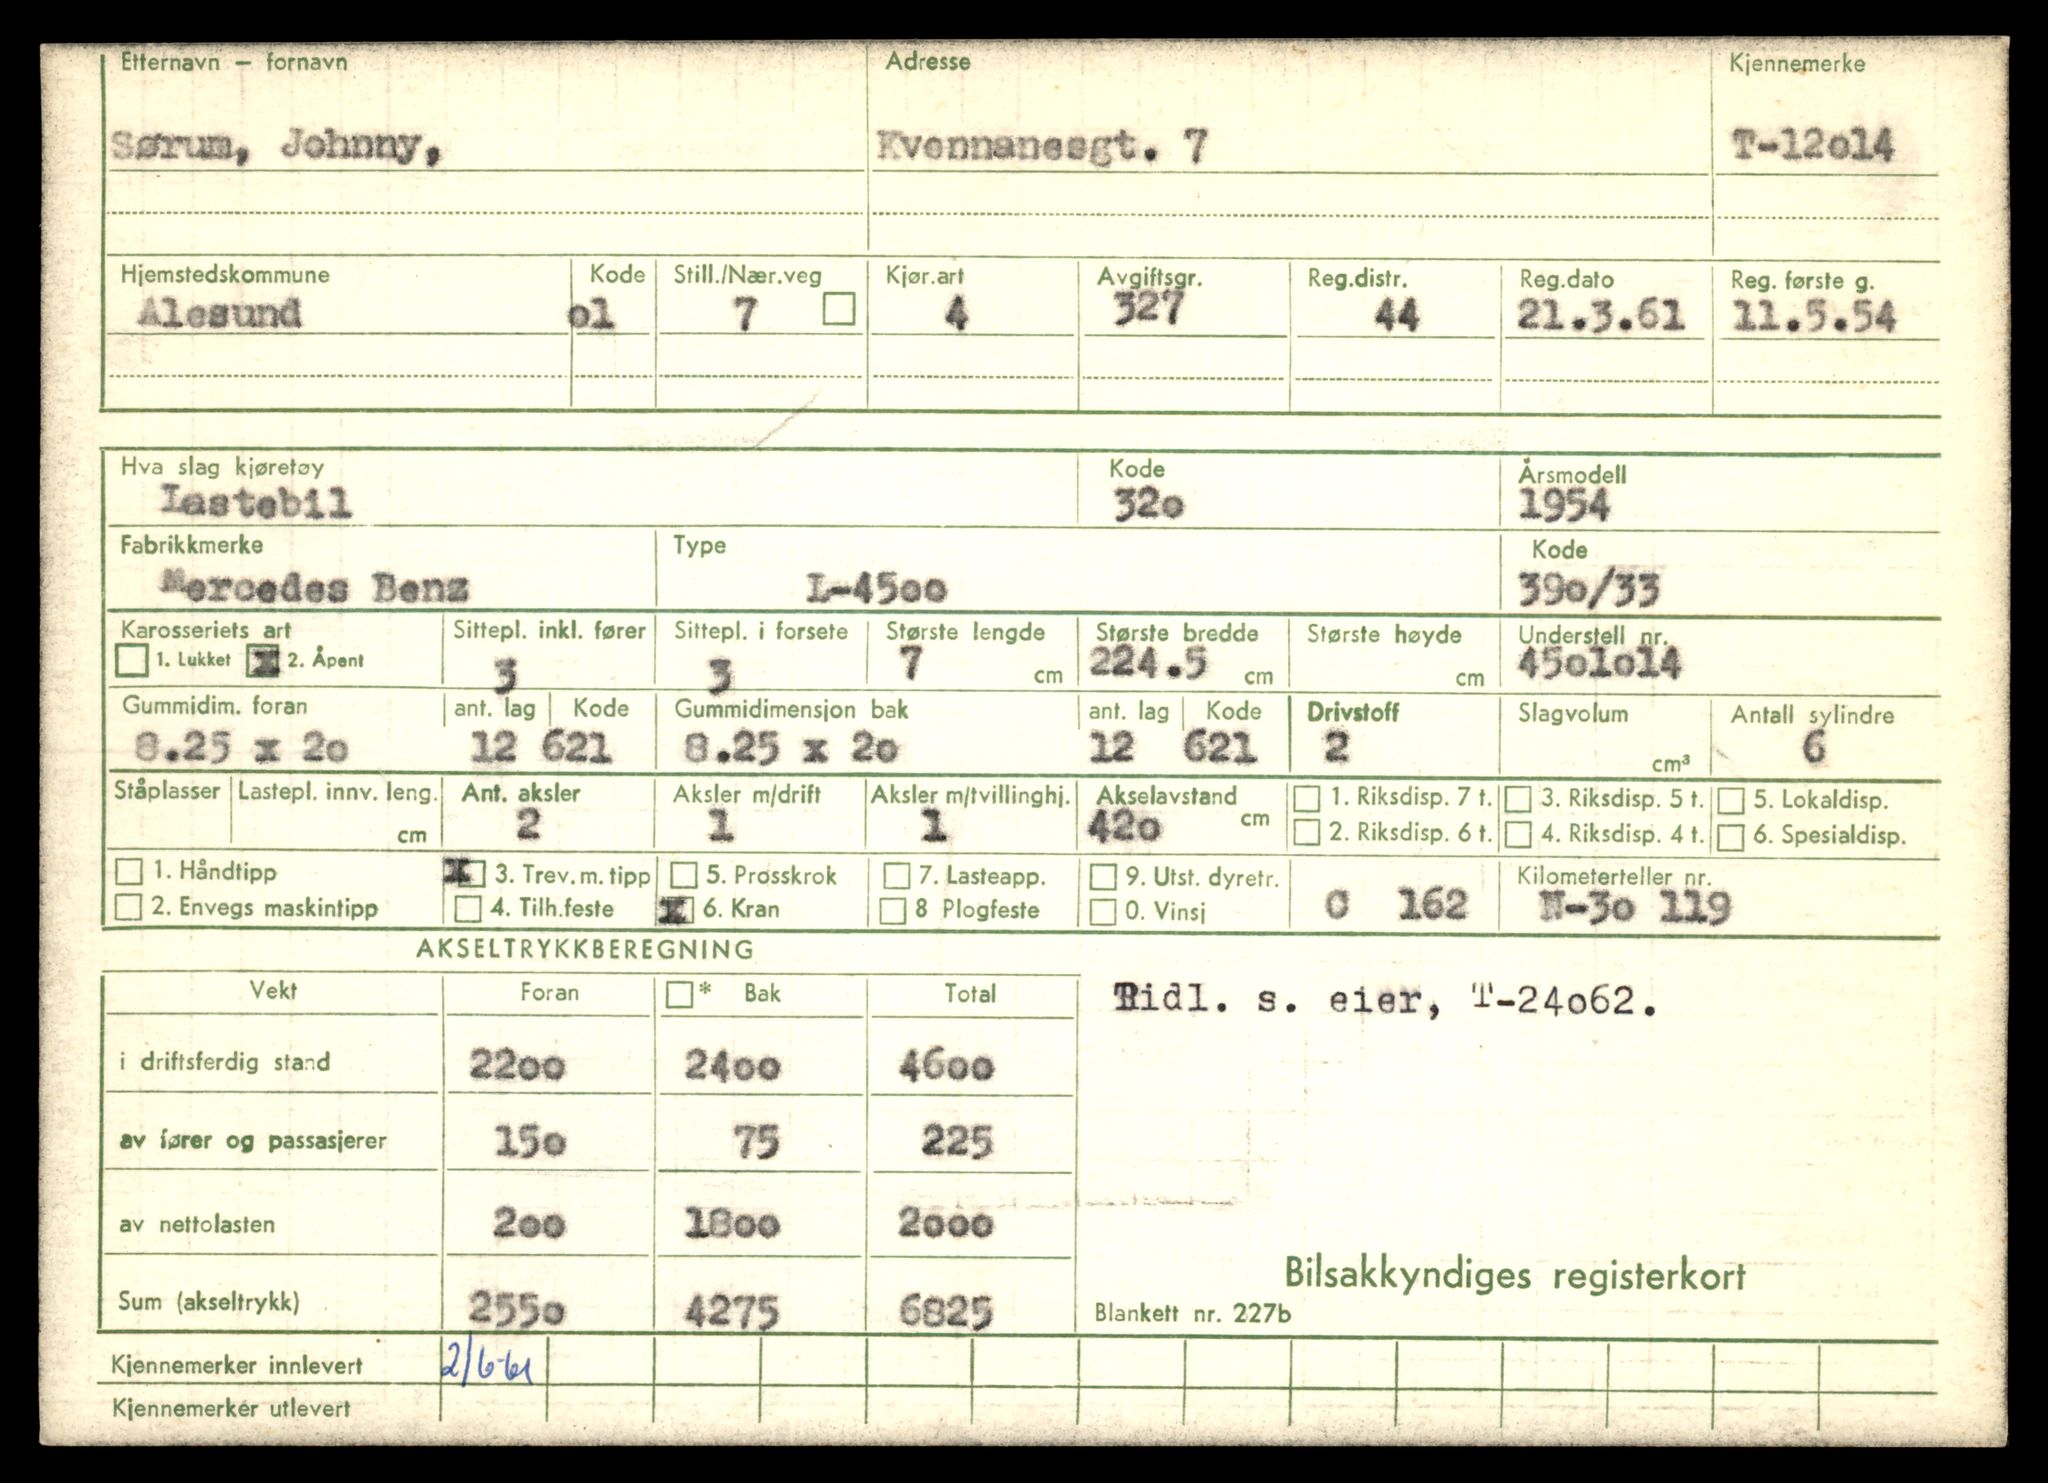 Etternavn – fornavn Adresse Kjennemerke
Sørum, Johnny, Kvennanesgt. 7 T-12o14
Hjemstedskommune Kode Still./Nær.veg Kjør.art Avgiftsgr. Reg.distr. Reg.dato Reg. første g.
Alesund o1 7 4 327 44 21.3.61 11.5.54
Hva slag kjøretøy Kode Årsmodell
Lastebil 32o 1954
Fabrikkmerke Type Kode
Mercedes Benz L-45oo 39o/33
Karosseriets art Sittepl. inkl. fører Sittepl. i forsete Største lengde Største bredde Største høyde Understell nr.
1. Lukket x 2. Åpent 3 3 7 cm 224.5 cm cm 45o1o14
Gummidim. foran ant. lag Kode Gummidimensjon bak ant. lag Kode Drivstoff Slagvolum Antall sylindre
8.25 x 2o 12 621 8.25 x 2o 12 621 2 cm³ 6
Ståplasser Lastepl. innv. leng. Ant. aksler Aksler m/drift Aksler m/tvillinghj. Akselavstand 1. Riksdisp. 7 t. 3. Riksdisp. 5 t. 5. Lokaldisp.
cm 2 1 1 42o cm 2. Riksdisp. 6 t. 4. Riksdisp. 4 t. 6. Spesialdisp.
1. Håndtipp x 3. Trev. m. tipp 5. Prosskrok 7. Lasteapp. 9. Utst. dyretr. Kilometerteller nr.
2. Envegs maskintipp 4. Tilh.feste x 6. Kran 8 Plogfeste 0. Vinsj C 162 N-3o 119
AKSELTRYKKBEREGNING
Vekt Foran * Bak Total
Tidl. s. eier, T-24o62.
i driftsferdig stand 22oo 24oo 46oo
av fører og passasjerer 15o 75 225
av nettolasten 2oo 18oo 2ooo
Bilsakkyndiges registerkort
Sum (akseltrykk) 255o 4275 6825
Blankett nr. 227b
Kjennemerker innlevert 2/6-61
Kjennemerker utlevert